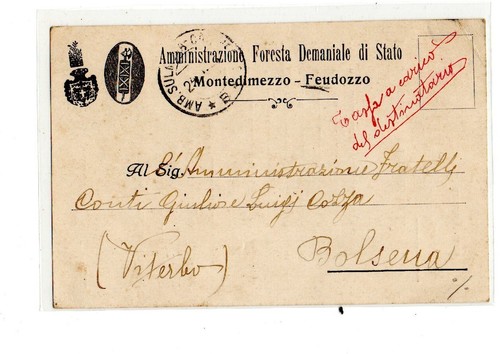 Amministrazione Foresta Demaniale di Stato
Montedimezzo - Feudozzo
Tassa a carico
del destinatario
Al Sig. L'Amministrazione Fratelli
Conti Giulio e Luigi Cozza
(Viterbo)
Bolsena
AMB. SULMONA